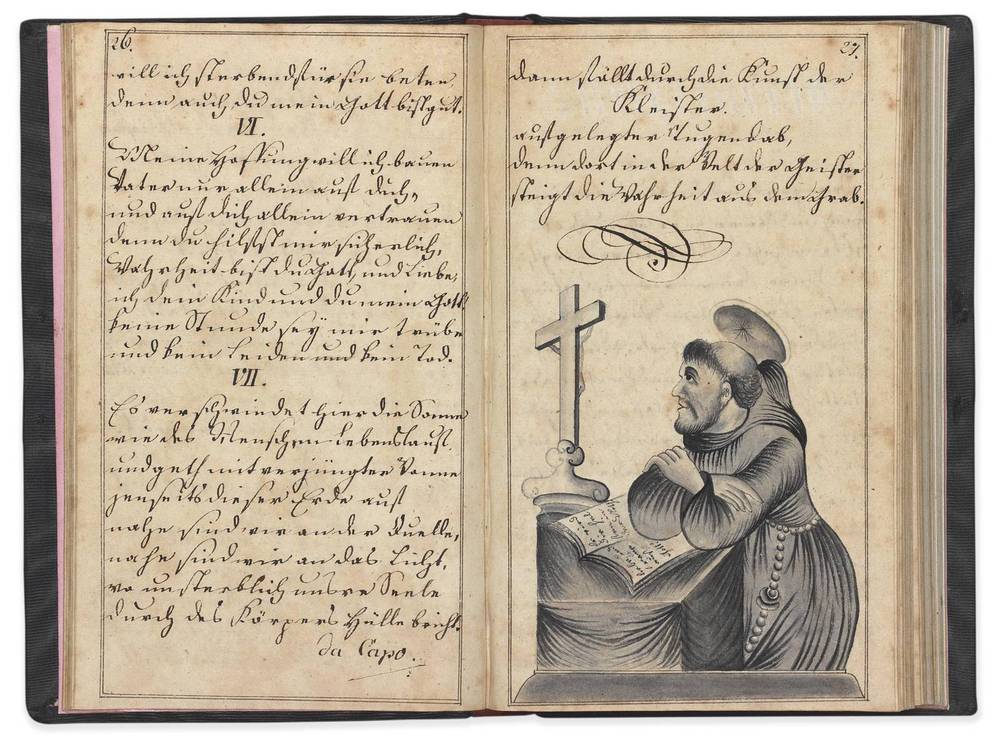 26.
will ich sterbend für sie beten,
denn auch du mein Gott bist gut.
VI.
Meine Hoffnung will ich bauen
Vater nur allein auf dich,
und auf dich allein vertrauen
denn du hilfst mir sicherlich,
Wahrheit bist du Gott, und Liebe,
ich dein Kind und du mein Gott!
keine Stunde seÿ mir trübe
und kein Leiden und kein Tod.
VII.
Es verschwindet hier die Sonne
wie des Menschen Lebenslauf
und geth mit verjüngter Wonne
jenseits dieser Erde auf
nahe sind wir an der Quelle,
nahe sind wir an das Licht,
wo unsterblich unsre Seele
durch des Körpers Hülle bricht.
da Capo.
27.
dann fällt durch die Kunst der
Kleister.
aufgelegter Tugend ab,
denn dort in der Welt der Geister
steigt die Wahrheit aus dem Grab.